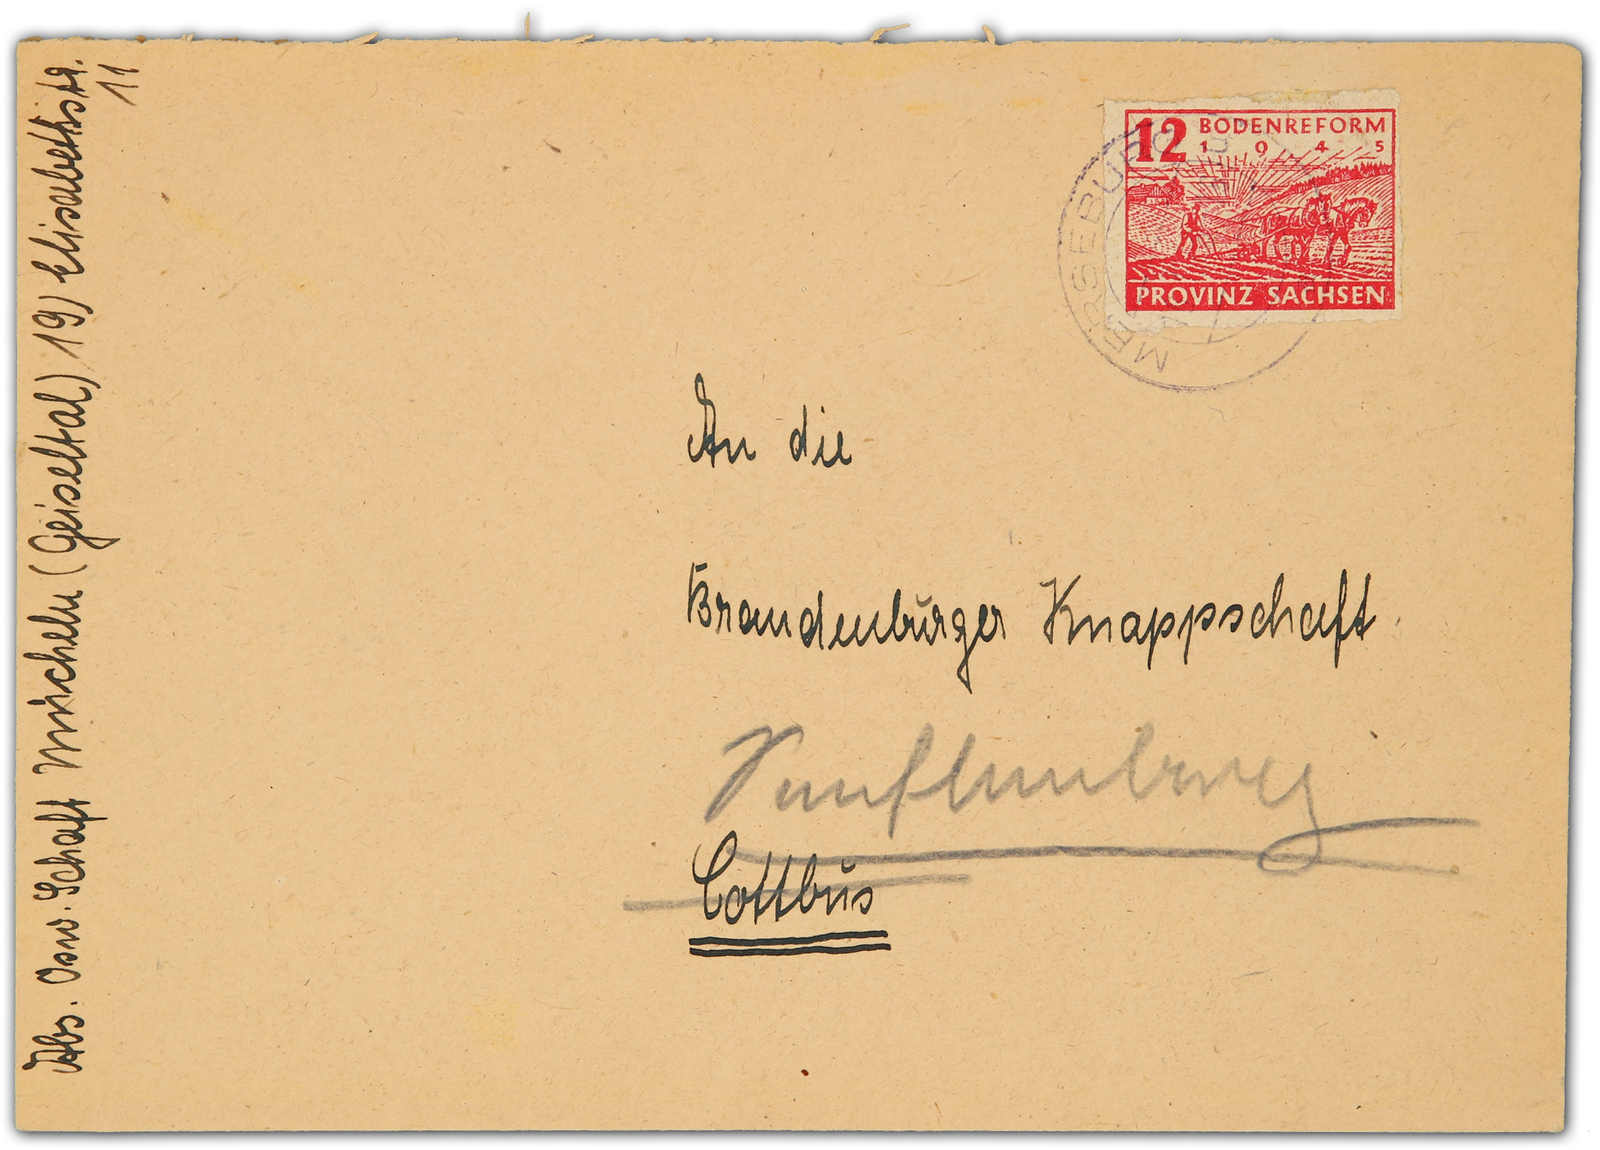 Abs. Osw. Schaft Mücheln (Geiseltal) 19) Elisabethstr.
11
12 BODENREFORM
1 9 4 5
PROVINZ SACHSEN
MERSEBURG
An die
Brandenbürger Knappschaft
Senftenberg
Cottbŭs